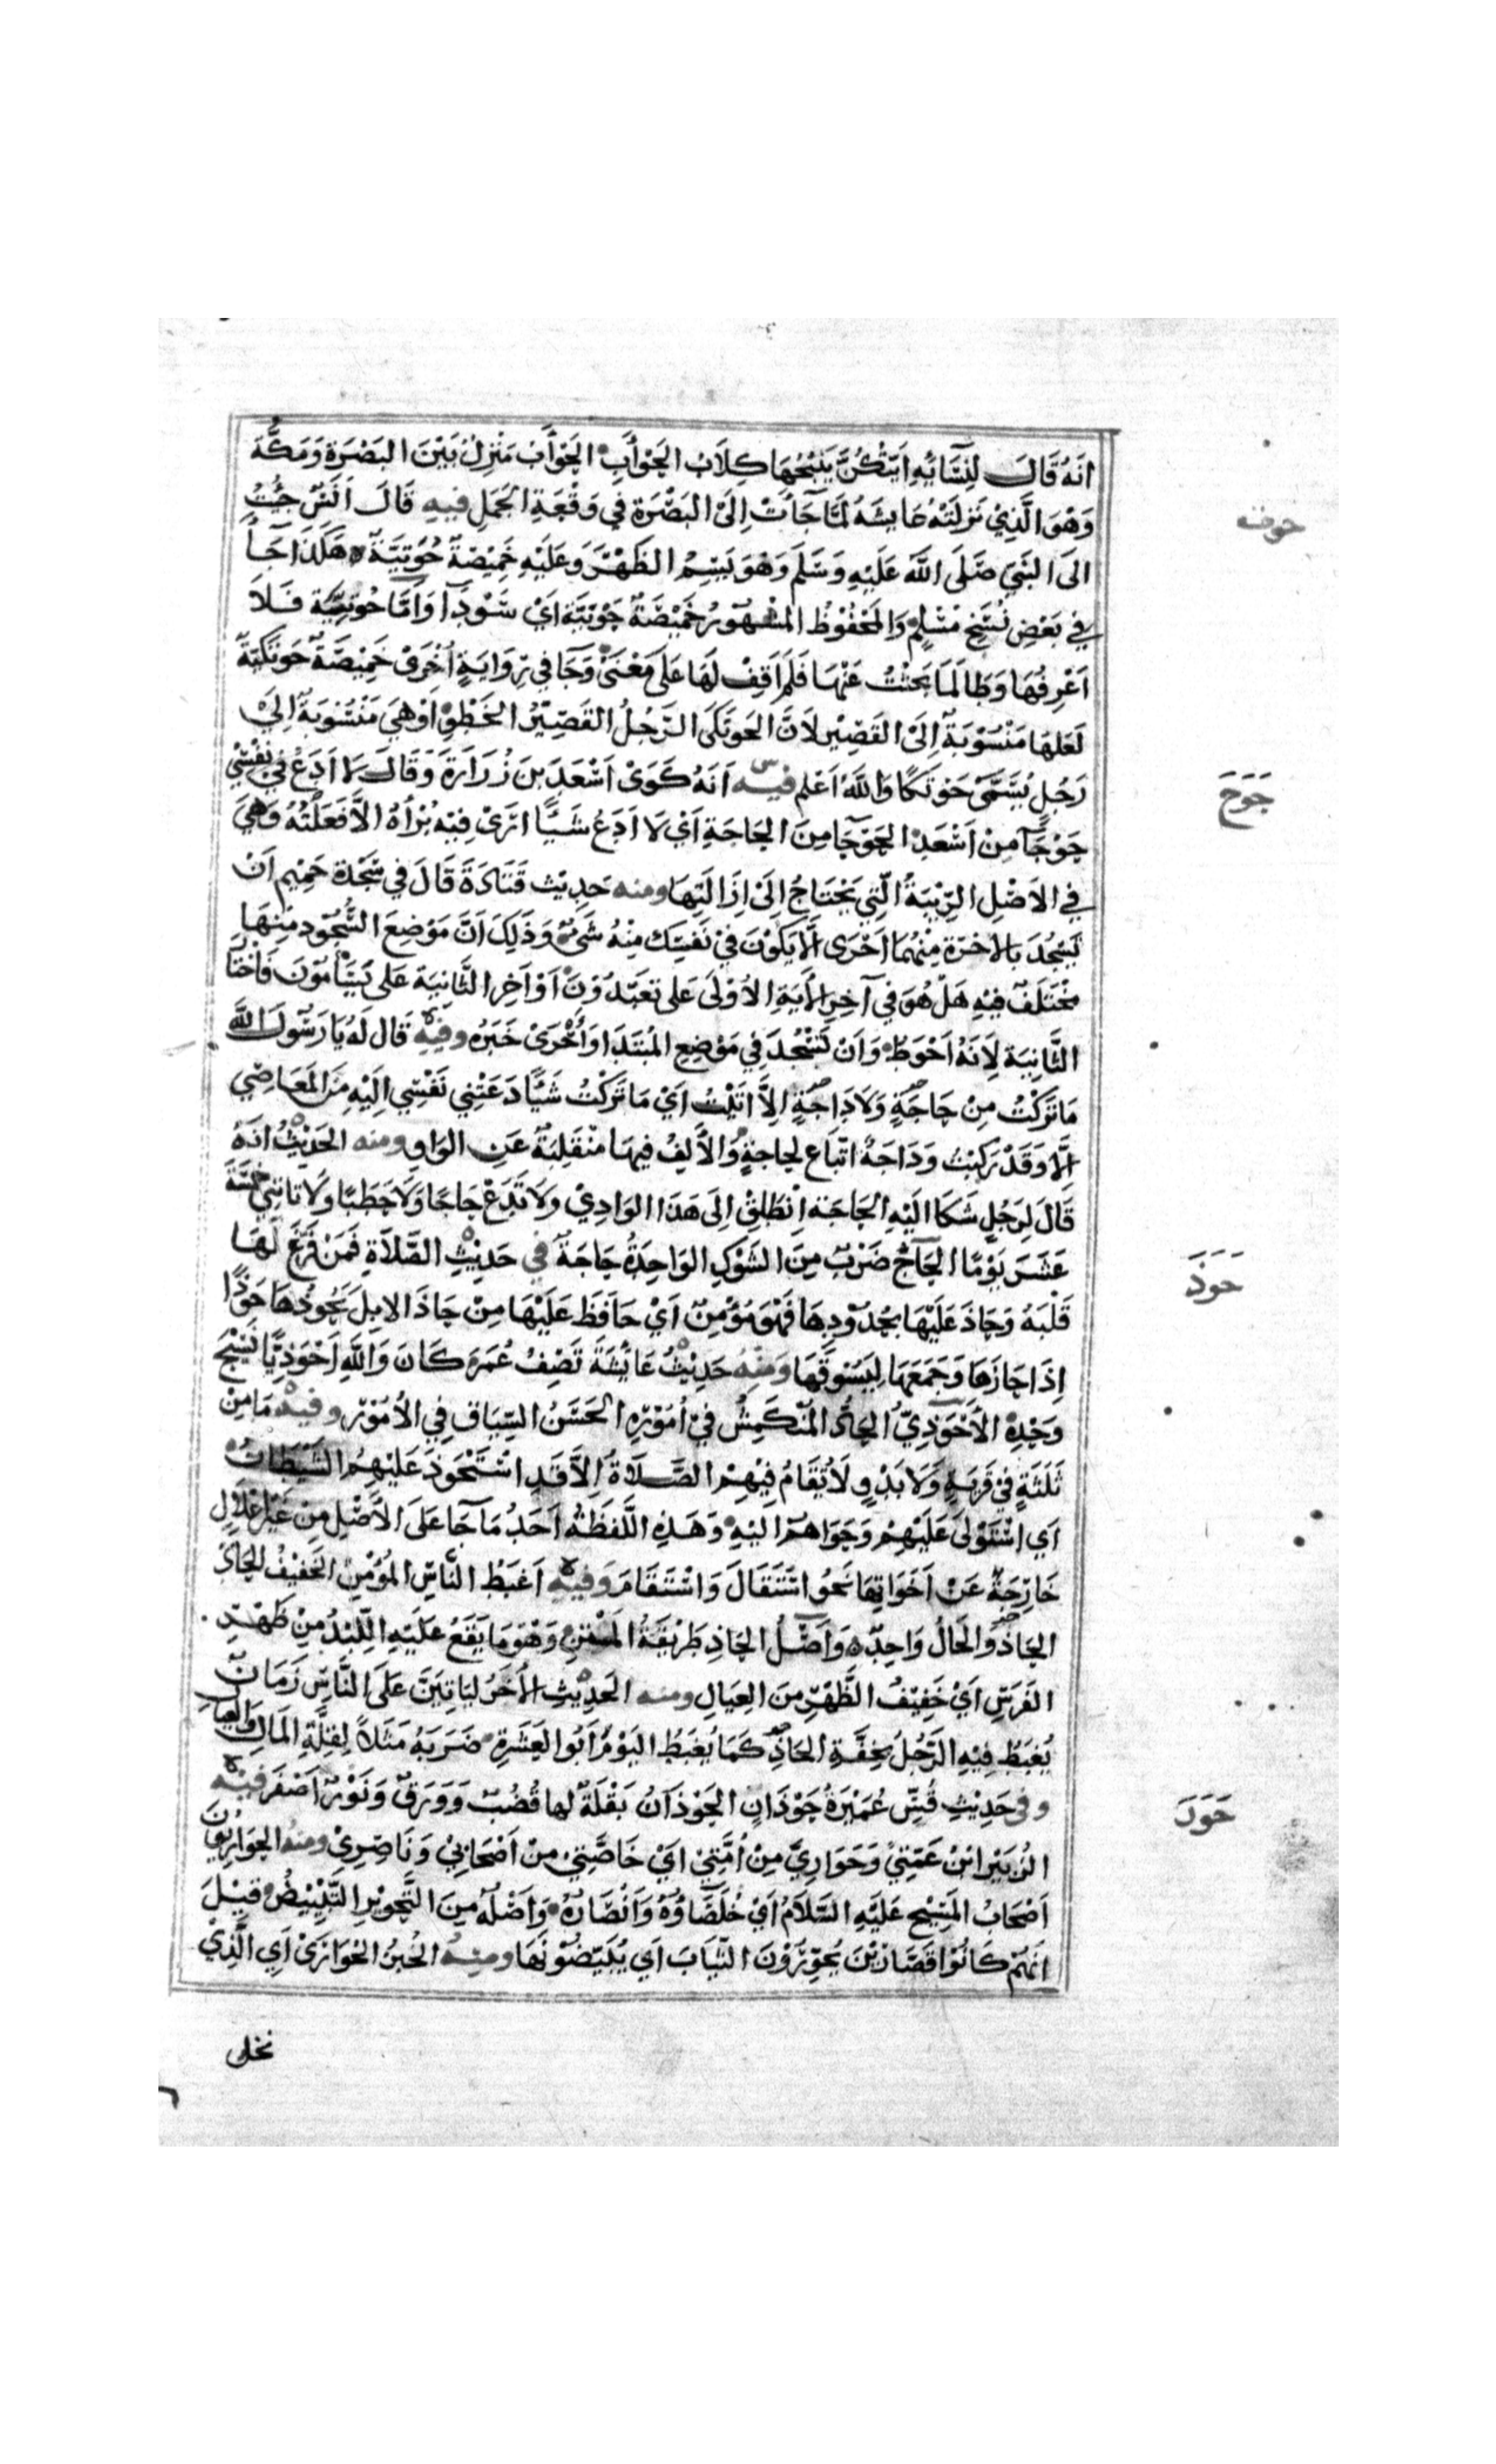 انه قال لنسائه ايتكن ينبحها كلاب الحوأب الحوأب منزل بين البصرة ومكة
وهو الذي نزلته عايشه لما جأت الى البصرة في وقعة الجمل فيه قال انس جئت
حوت
الى النبي صلى الله عليه وسلم وهو يسم الظهر وعليه خميصة حوتية هكذا جأ
في بعض نسخ مسلم والمحفوظ المشهور خميصة جونية اي سودآ واما حوتية فلا
اعرفها وطالما بحثت عنها فلم اقف لها على معنى وجآ في رواية اخرى خميصة حوتكية
لعلها منسوبة الى القصير لان الحوتكى الرجل القصير الخطو او هي منسوبة الى
رجل يسمى حوتكا والله اعلم فيه انه كوى اسعد بن زرارة وقال لا ادع في نفسي
حوج
حوجآ من اسعد الحوجآ من الحاجة اي لا ادع شيئا ارى فيه برأه الا فعلته وهي
في الاصل الريبة التي يحتاج الى ازالتها ومنه حديث قتادة قال في سجدة حميم ان
يسجد بالاخرة منهما احرى الا يكون في نفسك منه شئ وذلك ان موضع السجود منها
مختلف فيه هل هو في آخر الأية الاولى على تعبدون او آخر الثانية على يسأمون فاختا
الثانية لانه احوط وان تسجد في موضع المبتدا واحرى خبره وفيه قال له يا رسول الله
ما تركت من حاجة ولا داجة الا اتيت اي ما تركت شيئا دعتني نفسي اليه من المعاصي
الا وقد ركبت وداجة اتباع لحاجة والالف فيها منقلبة عن الواو ومنه الحديث انه
قال لرجل شكا اليه الحاجة انطلق الى هذا الوادي ولا تدع حاجا ولا حطبا ولا تاتني خمسة
عشر يوما الحاج ضرب من الشوك الواحدة حاجة في حديث الصلاة فمن فرغ لها
حوذ
قلبه وحاذ عليها بحدودها فهو مؤمن اي حافظ عليها من حاذ الابل يحوذها حوذا
اذا حازها وجمعها ليسوقها ومنه حديث عائشة تصف عمر كان والله احوذيا نسيج
وحده الاحوذي الجاد المنكمش في اموره الحسن السياق في الامور وفيه ما من
ثلثة في قرية ولا بدو لا تقام فيهم الصلاة الا قد استحوذ عليهم الشيطان
اي استولى عليهم وحواهم اليه وهذه اللفظة احد ما جآ على الاصل من غير اعلال
خارجة عن اخواتها نحو استقال واستقام وفيه اغبط الناس المؤمن الخفيف الحاذ
الحاذ والحال واحد واصل الحاذ طريقة المتن وهو ما يقع عليه اللبد من ظهر
الفرس اي خفيف الظهر من العيال ومنه الحديث الأخر لياتين على الناس زمان
يغبط فيه الرجل بخفة الحاذ كما يغبط اليوم ابو العشرة ضربه مثلا لقلة المال والعيال
وفي حديث قس عميرة حوذان الحوذان بقلة لها قضب وورق ونور اصفر فيه
حور
الزبير ابن عمتي وحواري من امتي اي خاصتي من اصحابي وناصري ومنه الحواريون
اصحاب المسيح عليه السلام اي خلصاؤه وانصاره واصله من التحوير التبييض قيل
انهم كانوا قصارين يحورون الثياب اي يبيضونها ومنه الخبز الحوارى اي الذي
نخل